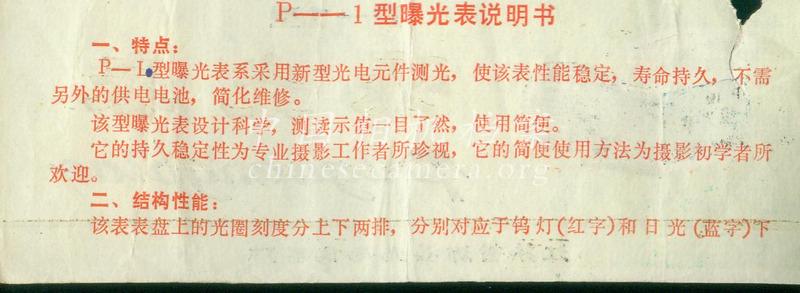 P——1型曝光表说明书
一、特点：
P—1型曝光表系采用新型光电元件测光，使该表性能稳定，寿命持久，不需
另外的供电电池，简化维修。
该型曝光表设计科学，测读示值一目了然，使用简便。
它的持久稳定性为专业摄影工作者所珍视，它的简便使用方法为摄影初学者所
欢迎。
chinesecamera.org
二、结构性能：
该表表盘上的光圈刻度分上下两排，分别对应于钨灯(红字)和日光(蓝字)下